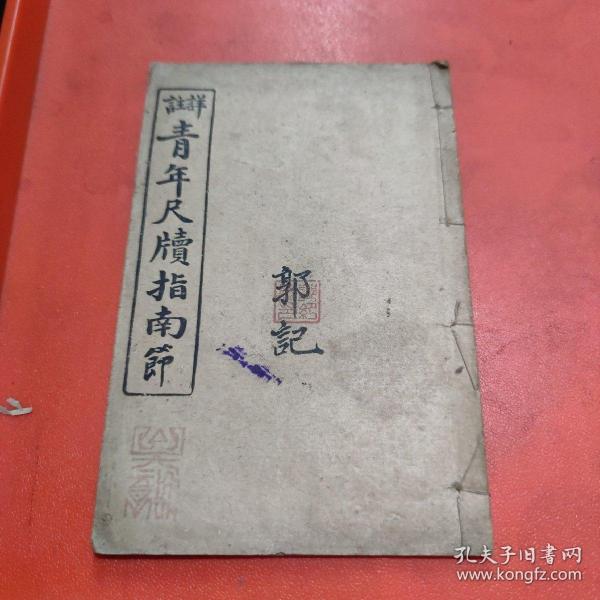 詳註
青年尺牘指南節
郭記
孔夫子旧书网
www.kongfz.com